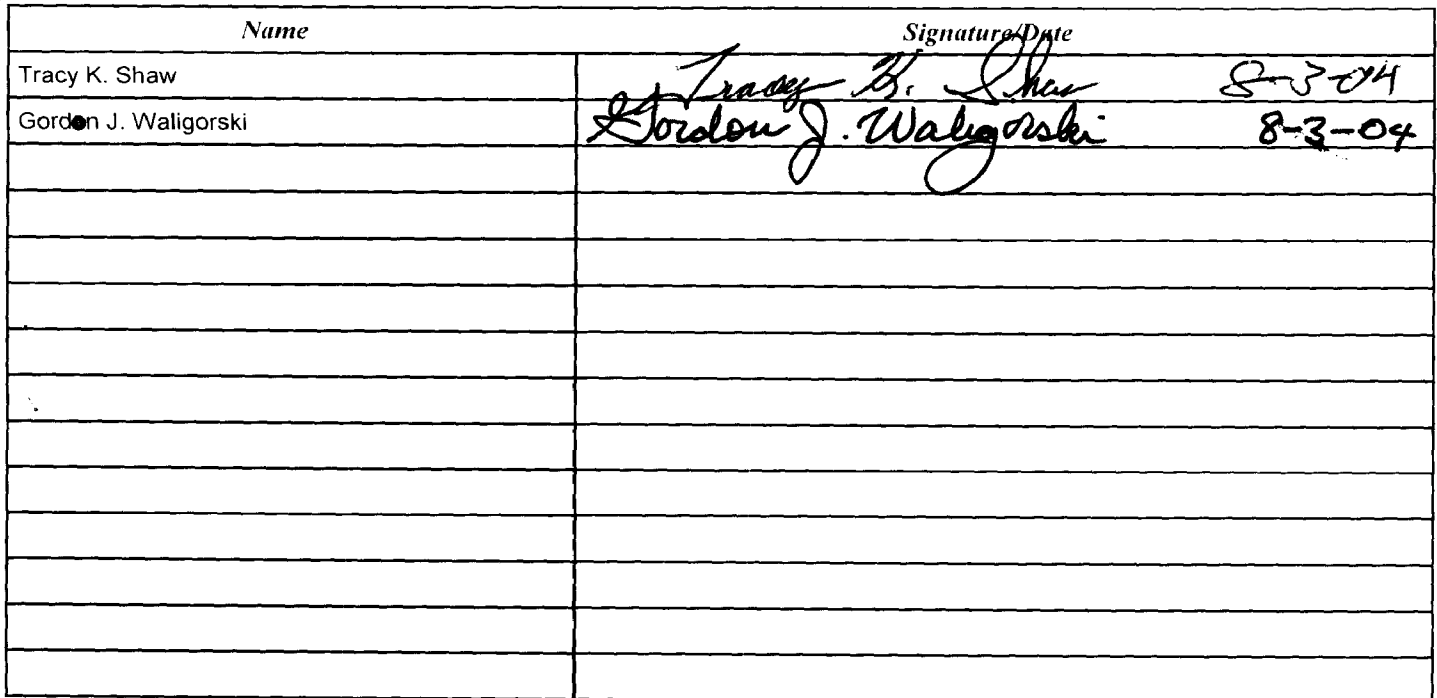 Name Signature/Date
Tracy K. Shaw Tracy K. Shaw 8-3-04
Gordon J. Waligorski Gordon J. Waligorski 8-3-04